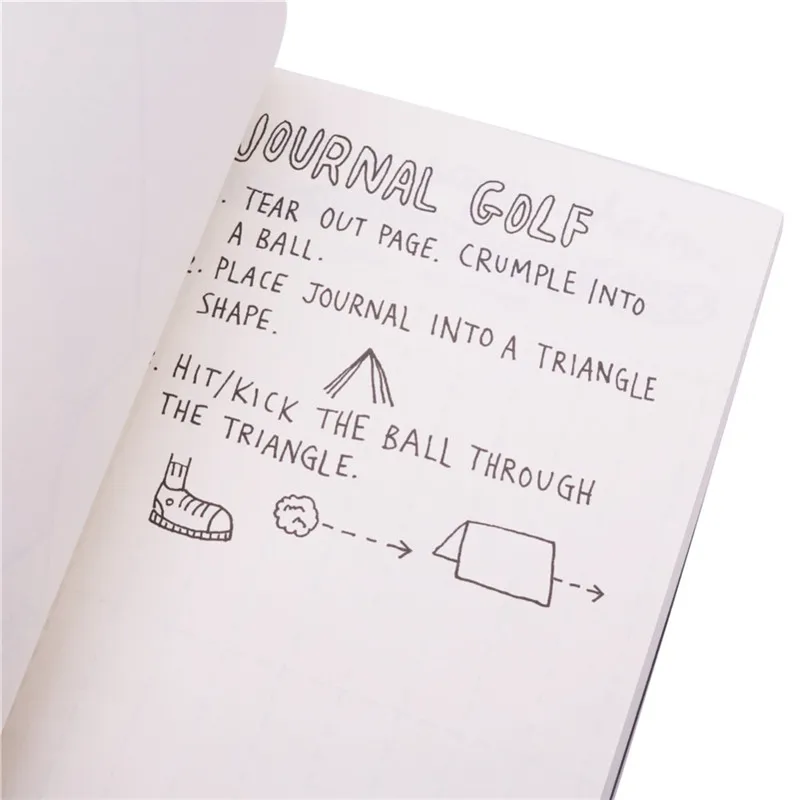 JOURNAL GOLF
. TEAR OUT PAGE. CRUMPLE INTO
A BALL.
2. PLACE JOURNAL INTO A TRIANGLE
SHAPE.
. HIT/KICK THE BALL THROUGH
THE TRIANGLE.